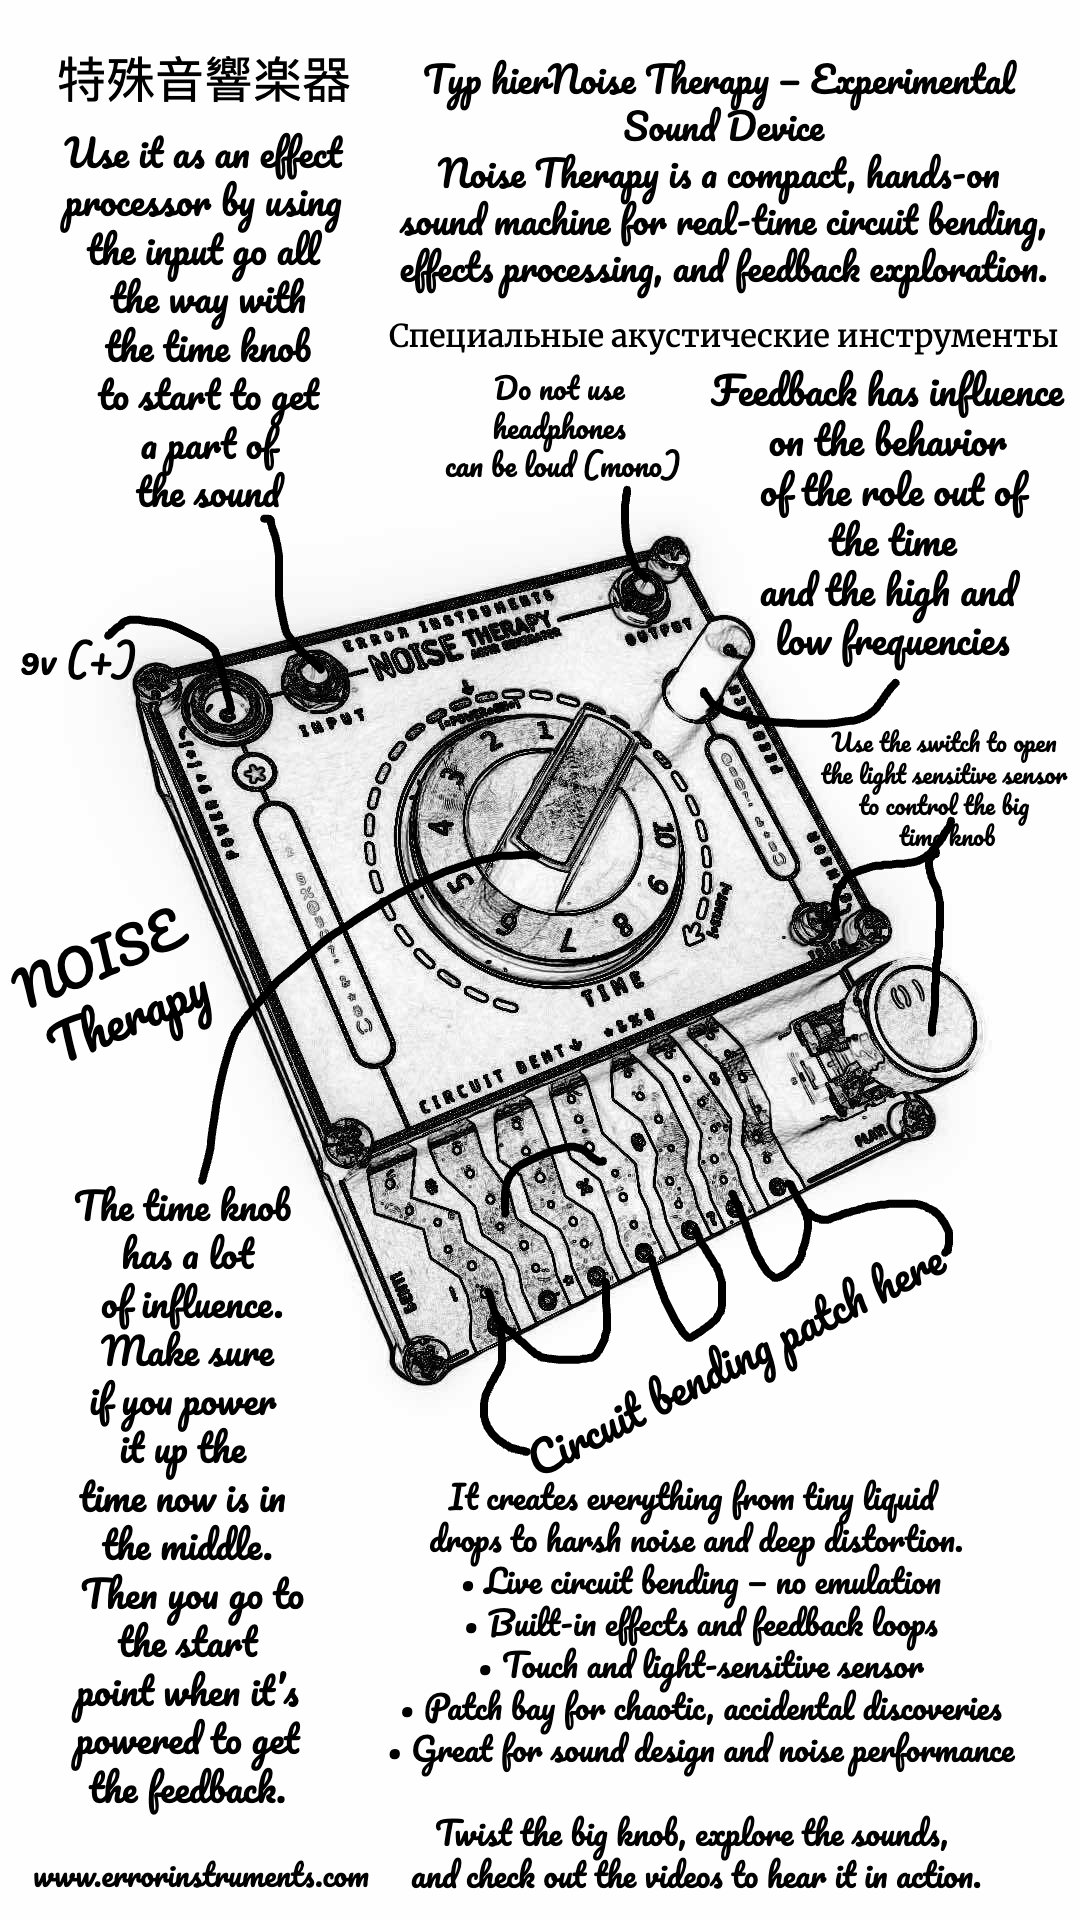 特殊音響楽器
Use it as an effect
processor by using
the input go all
the way with
the time knob
to start to get
a part of
the sound
Typ hierNoise Therapy – Experimental
Sound Device
Noise Therapy is a compact, hands-on
sound machine for real-time circuit bending,
effects processing, and feedback exploration.
Специальные акустические инструменты
Do not use
headphones
can be loud (mono)
Feedback has influence
on the behavior
of the role out of
the time
and the high and
low frequencies
9v (+)
Use the switch to open
the light sensitive sensor
to control the big
time knob
ERROR INSTRUMENTS
NOISE THERAPY
INPUT
OUTPUT
POWER 9V
1
2
3
4
5
6
7
8
9
10
TIME
CIRCUIT BENT
NOISE
Therapy
The time knob
has a lot
of influence.
Make sure
if you power
it up the
time now is in
the middle.
Then you go to
the start
point when it's
powered to get
the feedback.
Circuit bending patch here
It creates everything from tiny liquid
drops to harsh noise and deep distortion.
• Live circuit bending – no emulation
• Built-in effects and feedback loops
• Touch and light-sensitive sensor
• Patch bay for chaotic, accidental discoveries
• Great for sound design and noise performance
Twist the big knob, explore the sounds,
and check out the videos to hear it in action.
www.errorinstruments.com